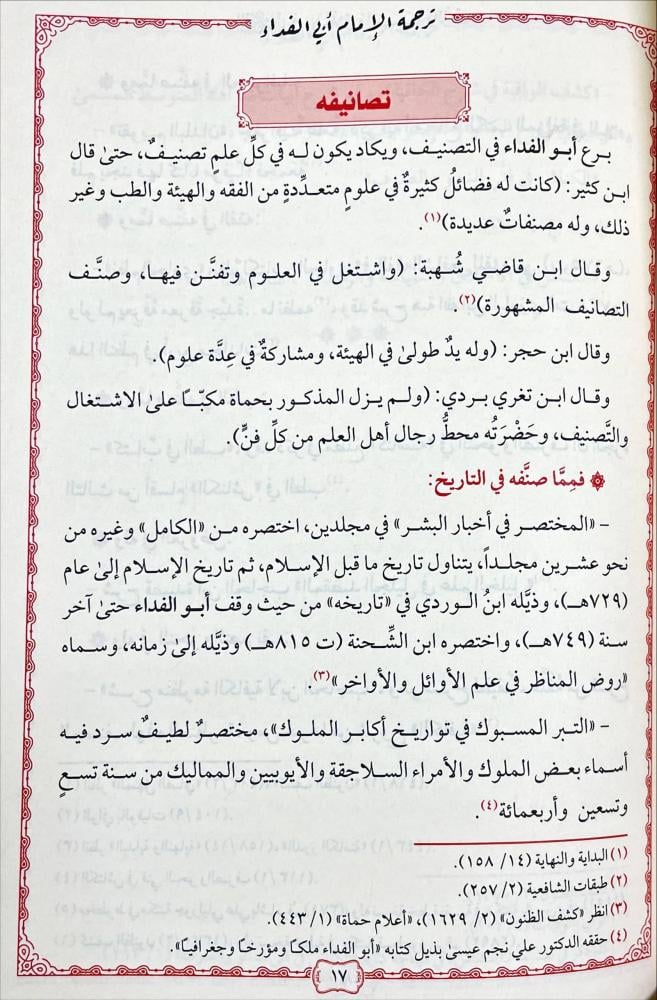 ترجمة الإمام أبي الفداء
تصانيفه
برع أبو الفداء في التصنيف، ويكاد يكون له في كلِّ علمٍ تصنيفٌ، حتىٰ قال
ابن كثير: (كانت له فضائلُ كثيرةٌ في علومٍ متعدِّدةٍ من الفقه والهيئة والطب وغير
ذلك، وله مصنفاتٌ عديدة)(١).
وقال ابن قاضي شُهبة: (واشتغل في العلوم وتفنَّن فيها، وصنَّف
التصانيف المشهورة)(٢).
وقال ابن حجر: (وله يدٌ طولىٰ في الهيئة، ومشاركةٌ في عِدَّة علوم).
وقال ابن تغري بردي: (ولم يزل المذكور بحماة مكبّاً علىٰ الاشتغال
والتَّصنيف، وحَضْرَتُه محطُّ رجال أهل العلم من كلِّ فنٍّ).
فمِمَّا صنَّفه في التاريخ:
- «المختصر في أخبار البشر» في مجلدين، اختصره من «الكامل» وغيره من
نحو عشرين مجلداً، يتناول تاريخ ما قبل الإسلام، ثم تاريخ الإسلام إلىٰ عام
(٧٢٩هـ)، وذيَّله ابنُ الوردي في «تاريخه» من حيث وقف أبو الفداء حتىٰ آخر
سنة (٧٤٩هـ)، واختصره ابن الشِّحنة (ت ٨١٥هـ) وذيَّله إلىٰ زمانه، وسماه
«روض المناظر في علم الأوائل والأواخر»(٣).
- «التبر المسبوك في تواريخ أكابر الملوك»، مختصرٌ لطيفٌ سرد فيه
أسماء بعض الملوك والأمراء السلاجقة والأيوبيين والمماليك من سنة تسعٍ
وتسعين وأربعمائة(٤).
(١) البداية والنهاية (١٤/ ١٥٨).
(٢) طبقات الشافعية (٢/ ٢٥٧).
(٣) انظر «كشف الظنون» (٢/ ١٦٢٩)، «أعلام حماة» (١/ ٤٤٣).
(٤) حققه الدكتور علي نجم عيسىٰ بذيل كتابه «أبو الفداء ملكاً ومؤرخاً وجغرافياً».
١٧